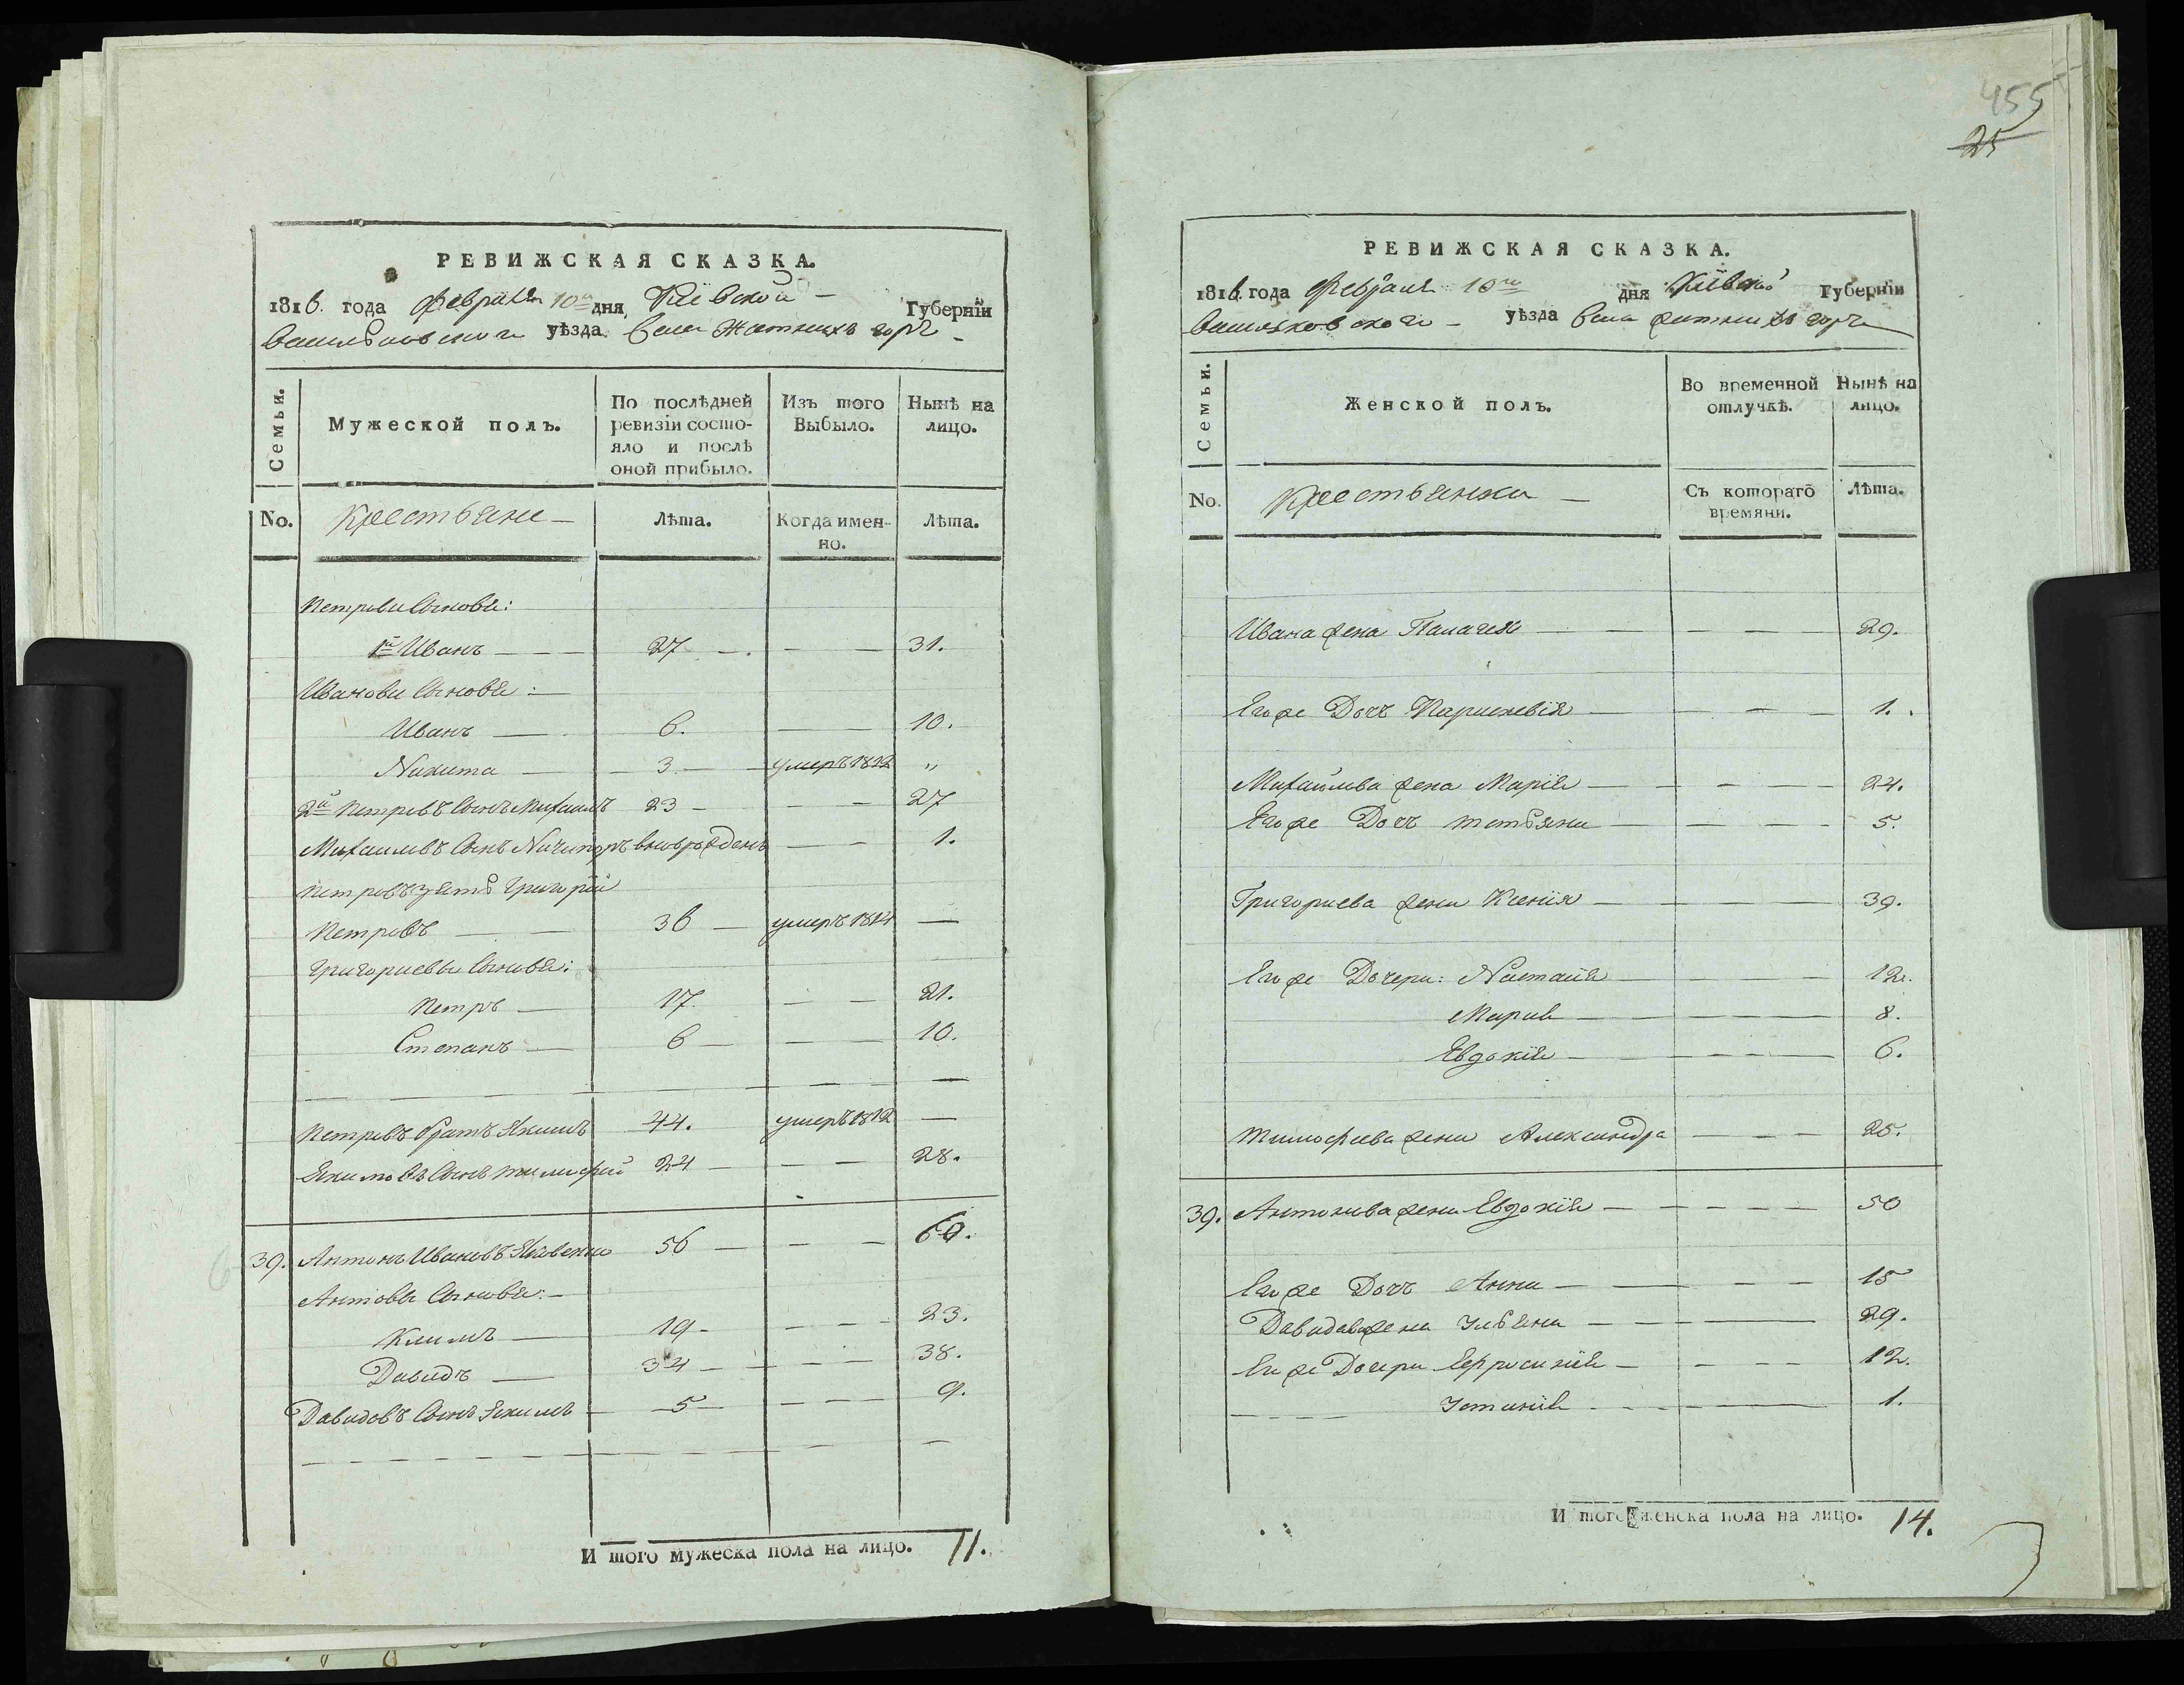 РЕВИЖСКАЯ СКАЗКА.
1816. года Февраля 10го дня, Кіевской Губерніи
Васильковского уѣзда Села Жытнихъ горъ
Семьи.
Мужеской полъ.
По послѣдней ревизіи состо-
яло и послѣ
оной прибыло.
Изъ того
Выбыло.
Нынѣ на
лицо.
No.
Крестьяне
Лѣта.
Когда имен-
но.
Лѣта.
Петрови Сынове:
1й Иванъ 27 31.
Иванови Сынове:
Иванъ 6. 10.
Никита 3 умеръ 1812 "
2й Петровъ Сынъ Михаилъ 23 27
Михаиловъ Сынъ Ничипоръ вновьрожденъ 1.
Петровъ зять Григорій
Петровъ 36 умеръ 1814
Григориевы Сынове:
Петръ 17. 21.
Степанъ 6 10.
Петровъ братъ Якимъ 44. умеръ 1812
Якимовъ Сынъ Тимофій 24 28.
39. Антонъ Ивановъ Яковенко 56 60.
Антовы Сынове:
Климъ 19 23.
Давидъ 34 38.
Давидовъ Сынъ Якимъ 5 9.
И того мужеска пола на лицо. 11.
455
25
РЕВИЖСКАЯ СКАЗКА.
1816. года Февраля 10го дня Кіевской Губерніи
Васильковского уѣзда Села Житнихъ горъ
Семьи.
Женской полъ.
Во временной
отлучкѣ.
Нынѣ на
лицо.
No.
Крестьянки
Съ котораго
времяни.
Лѣта.
Ивана жена Палагея 29.
Его же Дочъ Парискевія 1.
Михайлова жена Марія 24.
Его же Дочъ Татьяна 5.
Григориева жена Ксенія 39.
Его же Дочери: Настасія 12.
Марія 8.
Евдокія 6.
Тимофеева жена Александра 25.
39. Антонова жена Евдокія 50
Его же Дочъ Анна 15
Давидова жена Ульяна 29.
Его же Дочери Ефросинія 12.
Устинія 1.
И того женска пола на лицо. 14.